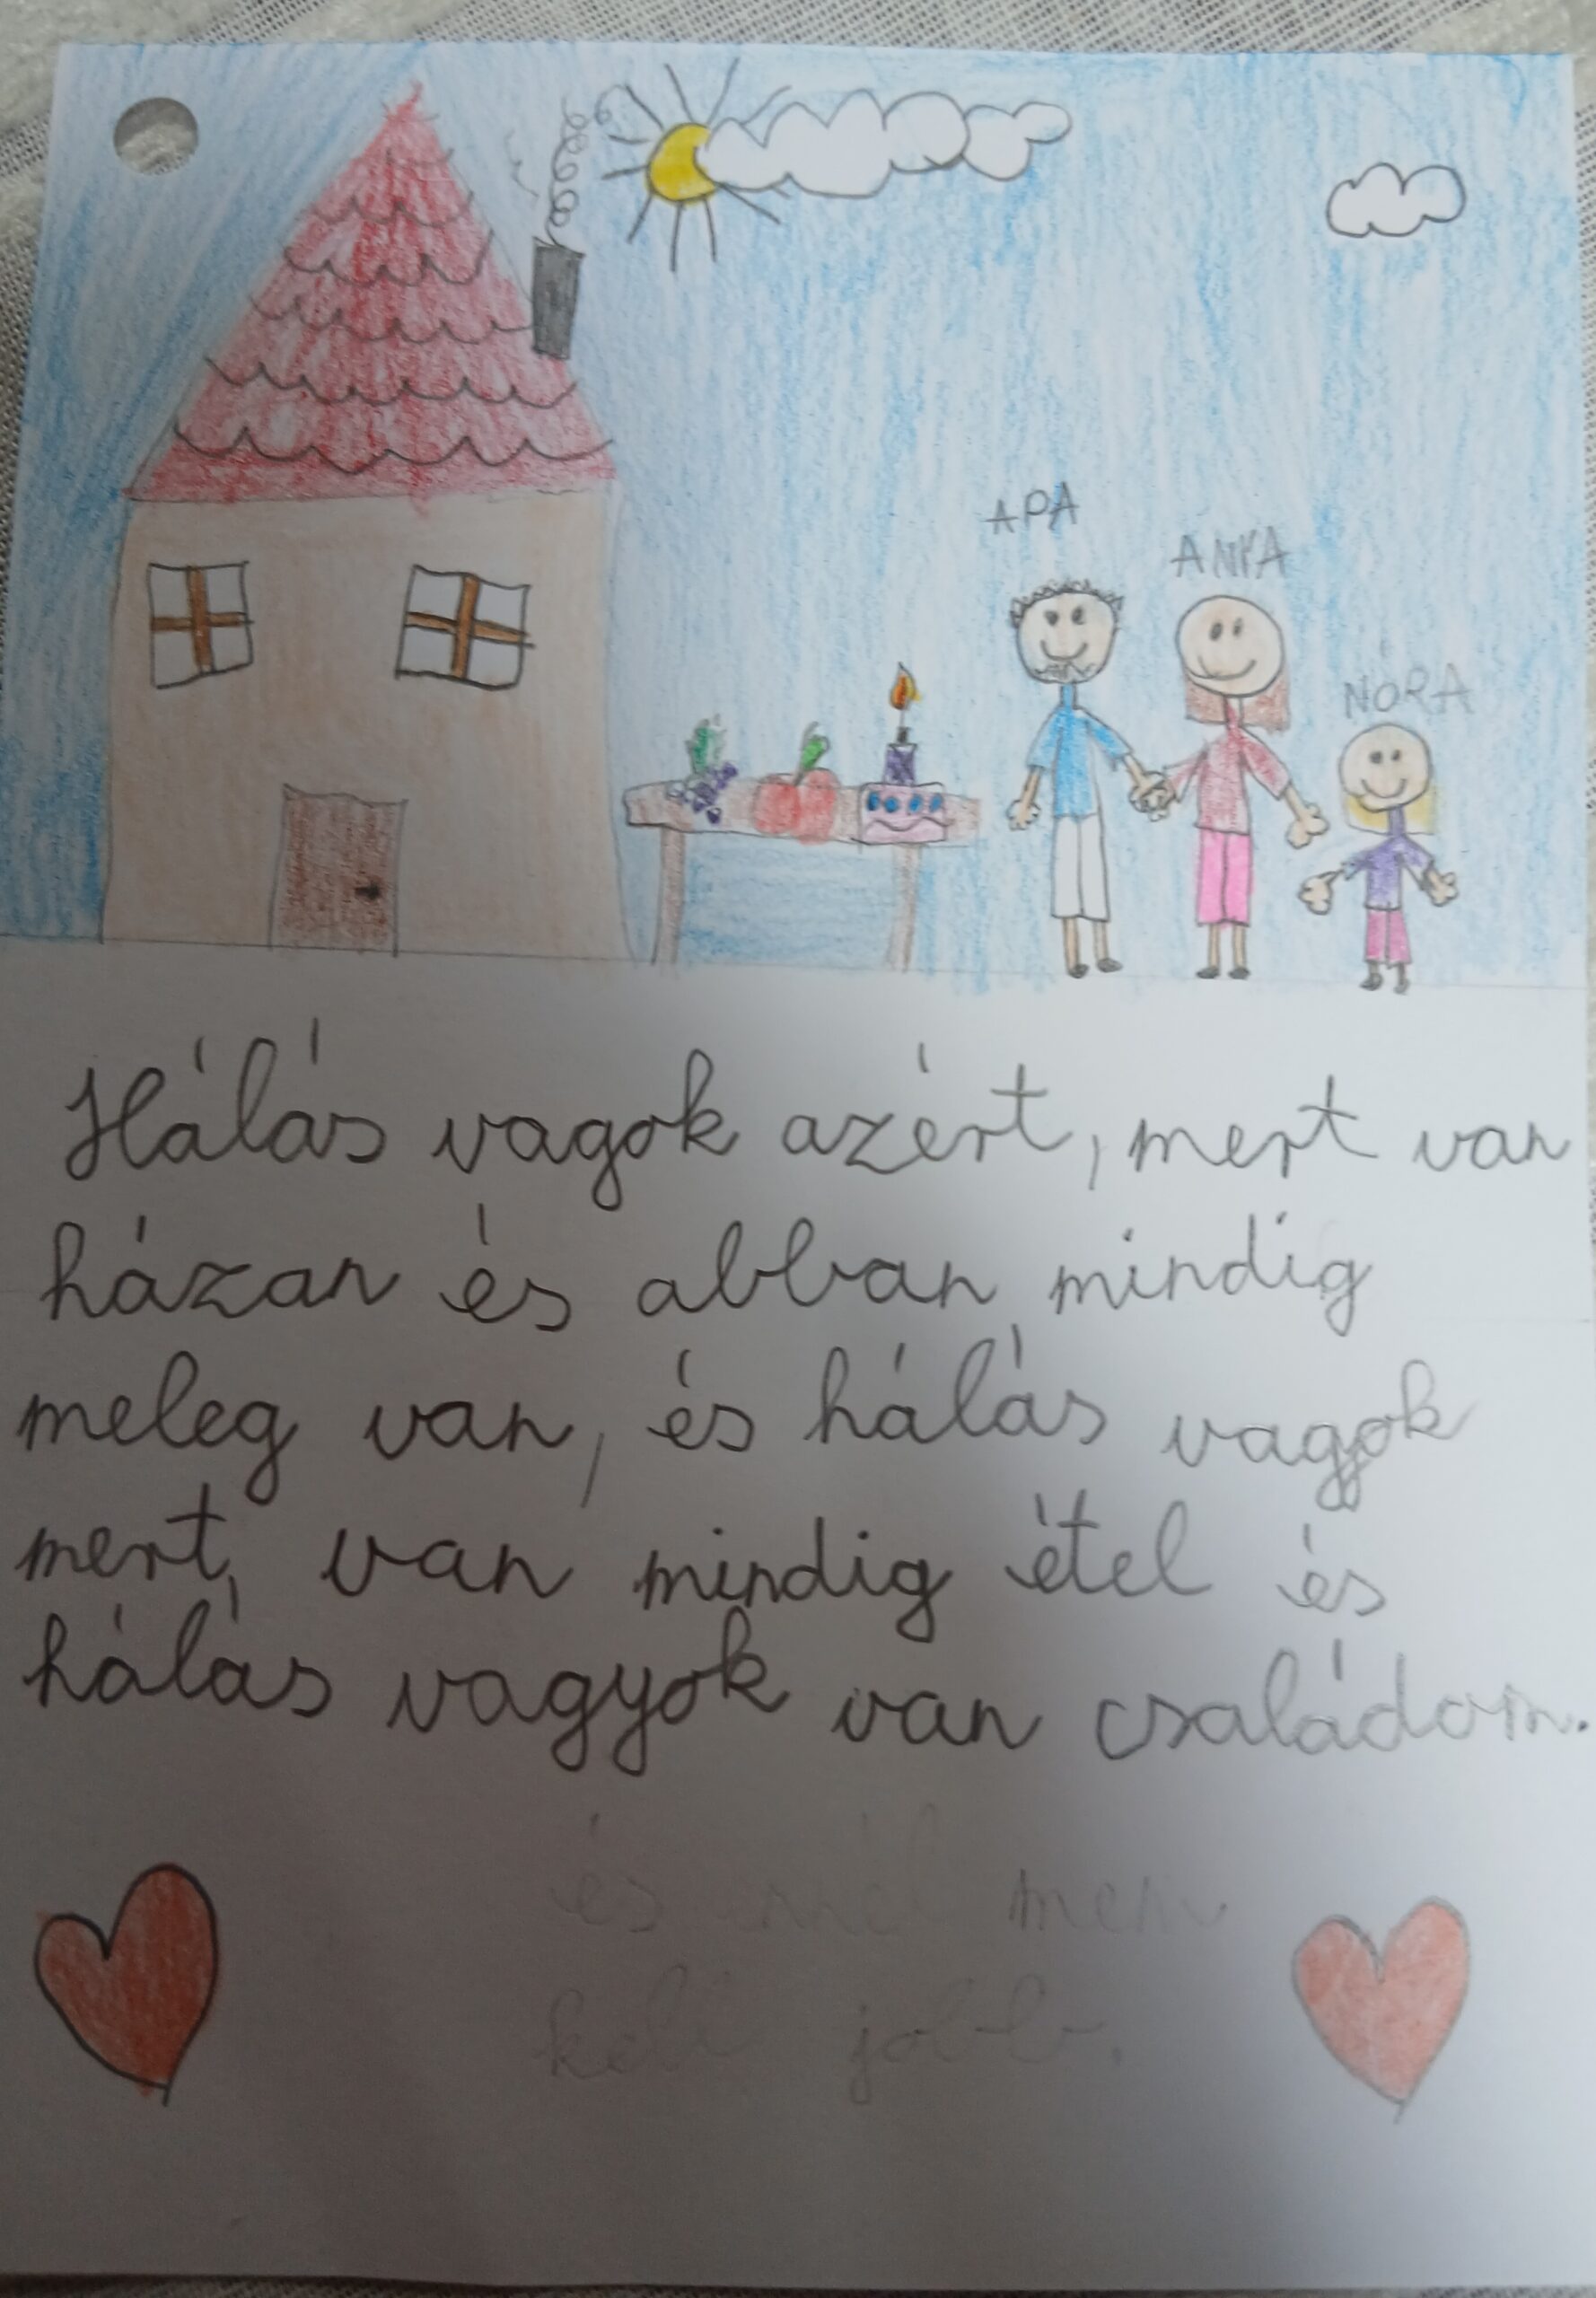 APA
ANYA
NÓRA
Hálás vagok azért, mert van
házan és abban mindig
meleg van, és hálás vagyok
mert, van mindig étel és
hálás vagyok van családom.
és
kell jobb.